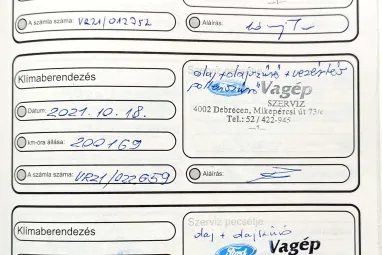 A számla száma: VR21/012352
Aláírás:
Klímaberendezés
Dátum: 2021. 10. 18.
km-óra állása: 200169
A számla száma: VR21/022659
olaj + olajszűrő + vezérlés
Vagép
SZERVIZ
4002 Debrecen, Mikepércsi út 73/c
Tel.: 52 / 422-945
Aláírás:
Klímaberendezés
Szerviz pecsétje
olaj + olajszűrő
Ford
Vagép